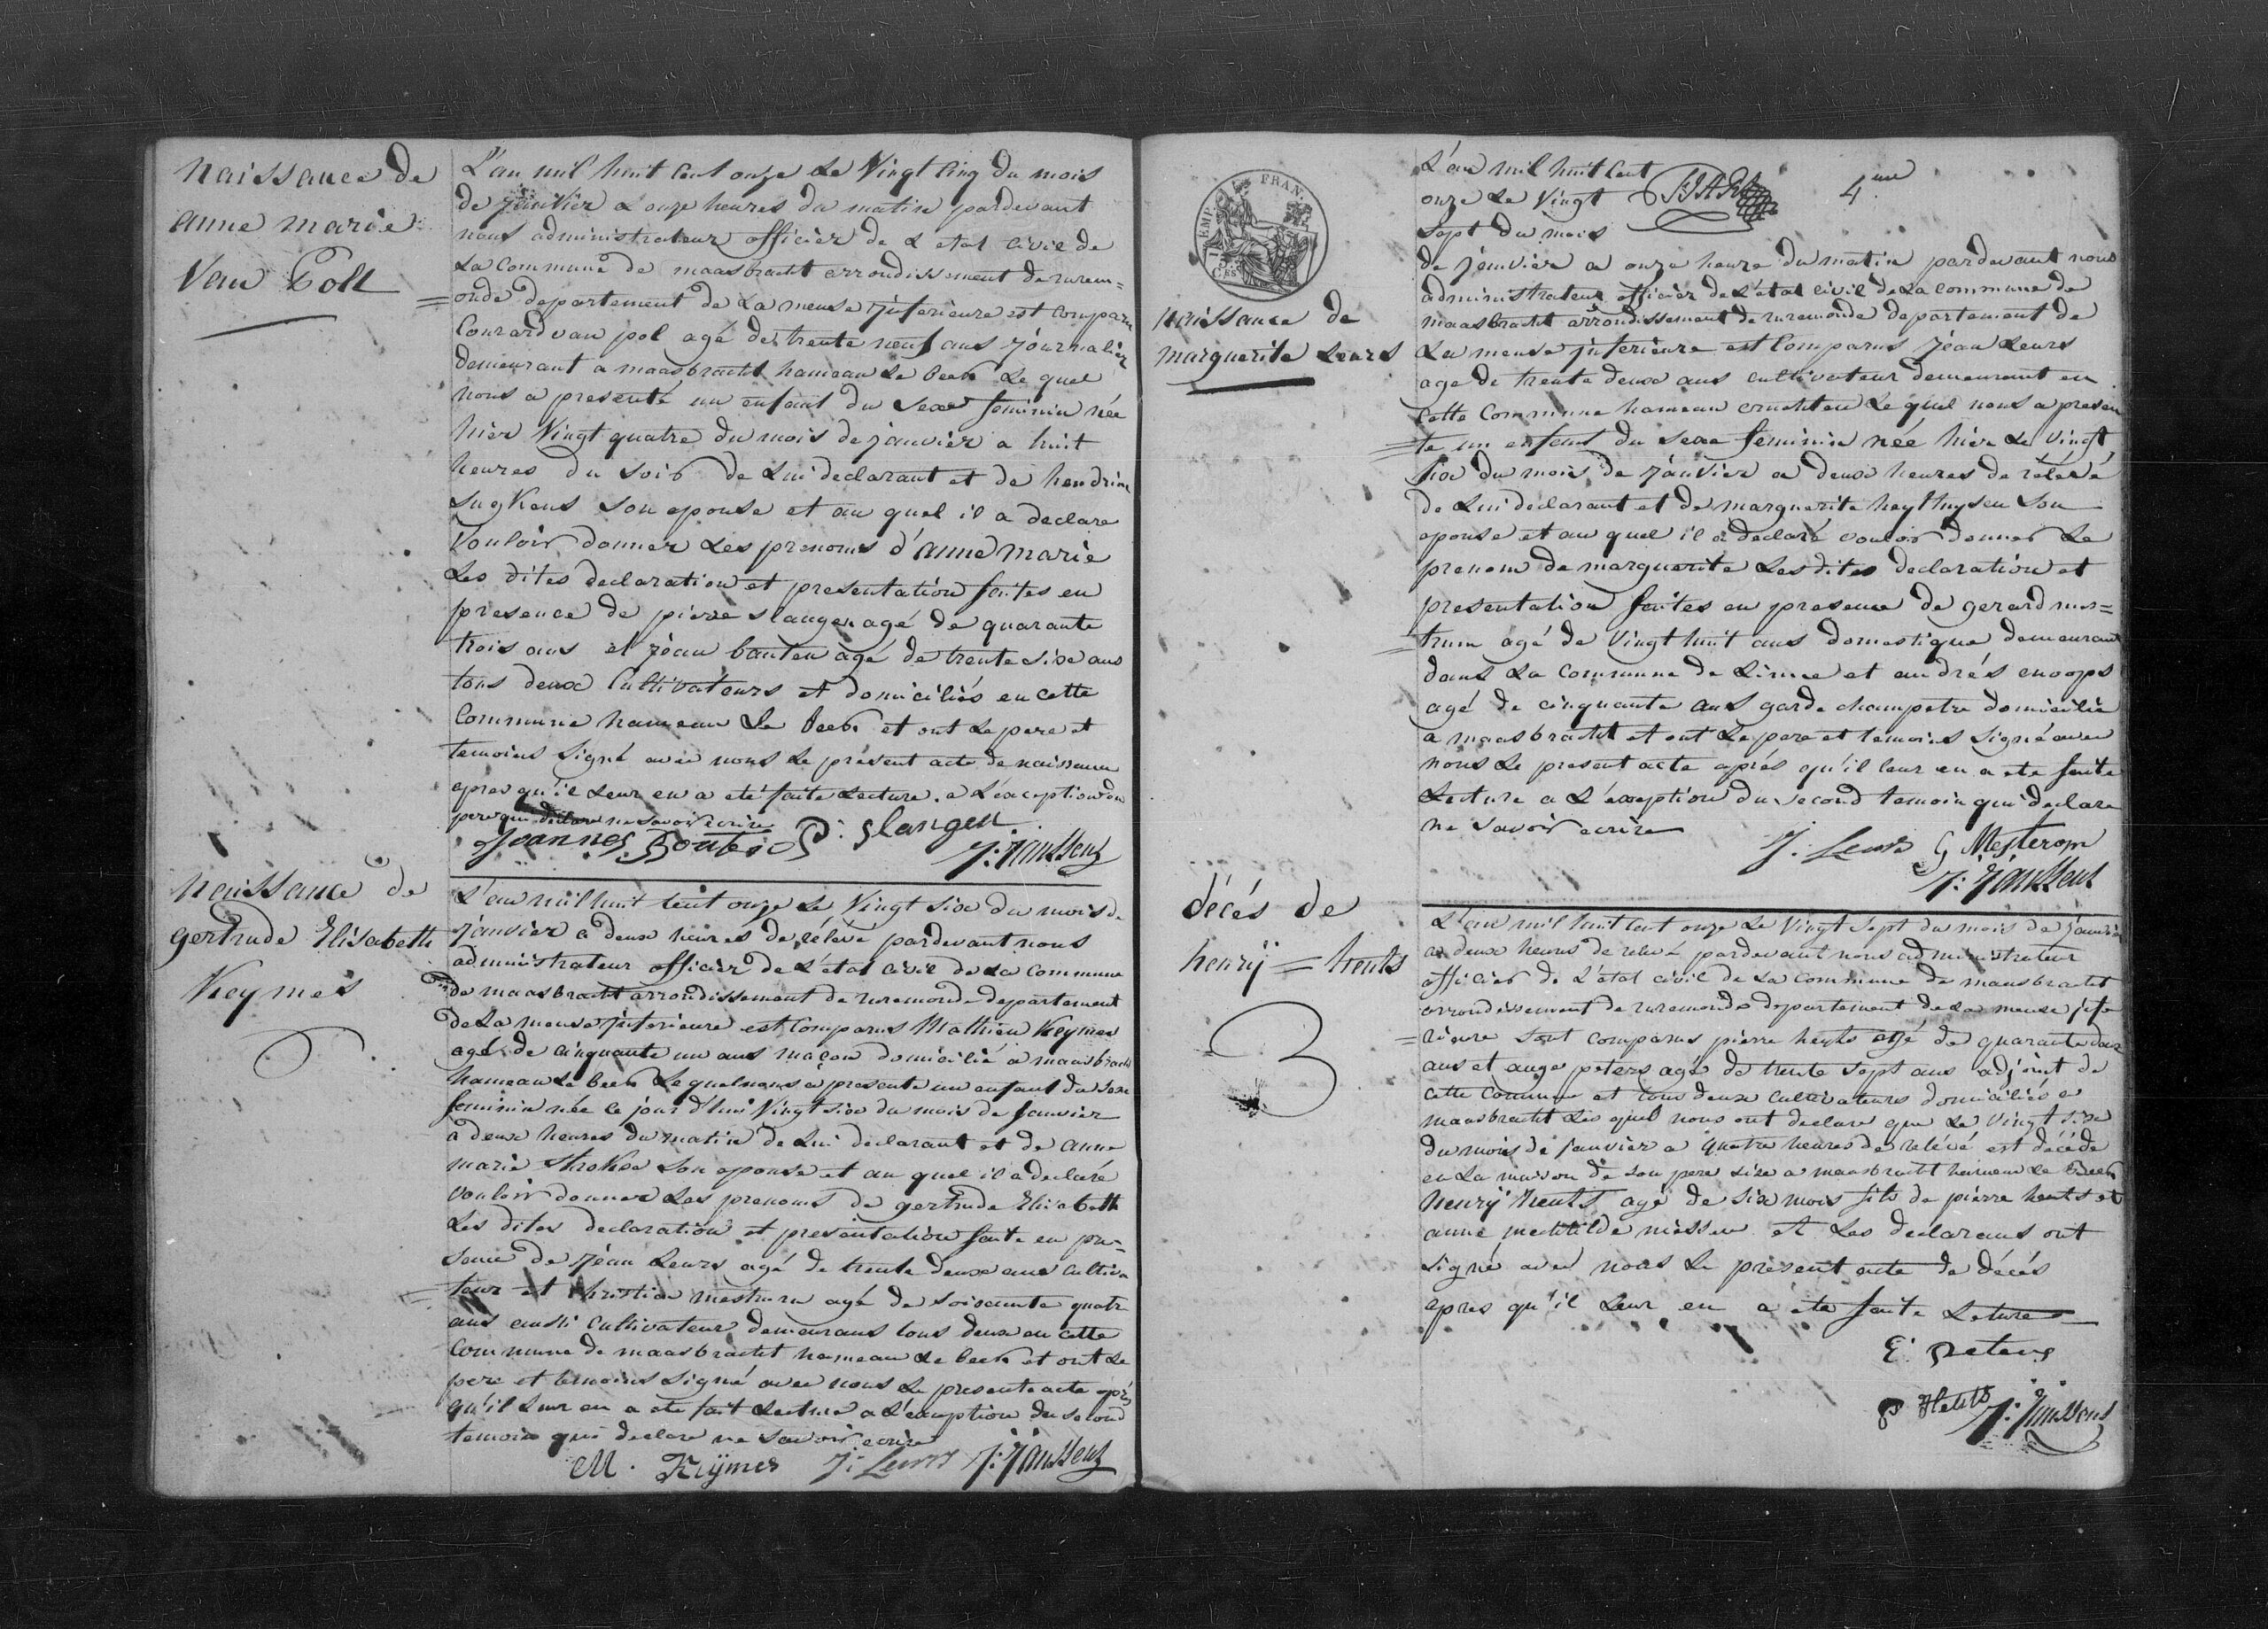 Naissance de
anne marie
Van Poll
L'an mil huit cent onze Le Vingt cinq du mois
de Janvier a onze heures du matin pardevant
nous administrateur officier de L'etat civil de
La Commune de maasbracht arrondissement de rurem=
=onde departement de La meuse jnferieure est comparu
Conrard van pol agé de trente neuf ans Journalier
demeurant a maasbracht hameau Le beek Le quel
nous a presenté un enfant du sexe feminin née
hier Vingt quatre du mois de janvier a huit
heures du soir de Lui declarant et de hendrine
son epouse et au quel il a declare
vouloir donner Les prenoms d'anne marie
Les dites declaration et presentation faites en
presence de pierre slangen agé de quarante
trois ans et jean bauten agé de trente sixe ans
tous deux Cultivateurs et domiciliés en cette
Commune hameau Le beek et ont Le pere et
temoins signé avec nous Le présent acte de naissance
apres qu'il Leur en a eté faite Lecture. a L'exception du
pere qui déclare ne savoir ecrire
Joannes P: Slangen
J: Janssens
Naissance de
gertrude Elisabeth
Keymes
L'an mil huit cent onze Le Vingt six du mois de
Janvier a deux heures de relevé pardevant nous
administrateur officier de L'état civil de La Commune
de maasbracht arrondissement de ruremonde departement
de La meuse jnferieure est Comparus Mathieu Keymes
agé de cinquante un ans maçon domicilié a maasbracht
hameau Le beek Le quel nous a presente un enfant du sexe
feminin née ce jour d'hui Vingt six du mois de Janvier
a deux heures du matin de Lui declarant et de anne
marie son epouse et au quel il a declaré
vouloir donner Les prenoms de gertrude Elisabeth
Les dites declaration et presentation faite en pre=
sence de Jean Leurs agé de trente deux ans cultiva
=teur et Christian mestrum agé de soisante quatre
ans aussi Cultivateur demeurans tous deux en cette
Commune de maasbracht hameau Le beek et ont Le
pere et temoins signé avec nous Le presente acte après
qu'il Leur en a ete fait Lecture a L'exception du second
temoin qui declare ne savoir ecrire
M. Kijmes J: Leurs J: Janssens
TIMP. FRAN.
Naissance de
marguerite Leurs
L'an mil huit cent
onze Le Vingt 4me
sept du mois
de janvier a onze heure du matin pardevant nous
administrateur officier de L'etat civil de La Commune de
maasbracht arrondissement de ruremonde departement de
La meuse jnferieure est Comparus Jean Leurs
age de trente deux ans cultivateur demeurant en
Cette Commune hameau Le quel nous a presen
=te un enfant du sexe feminin née hier Le vingt
six du mois de Janvier a deux heures de relevé
de Lui declarant et de marguerite heythuysen son
epouse et au quel il a declaré vouloir donner Le
prenom de marguerite Les dites declaration et
presentation faites en presence de gerard mes=
=trum agé de Vingt huit ans domestique demeurant
dans La commune de Linne et andrés
agé de cinquante ans garde champetre domicilié
a maasbracht et ont Le pere et temoins signé avec
nous Le present acte aprés qu'il leur en a ete faite
Lecture a L'exception du second temoin qui declare
ne savoir ecrire
J. Leurs G Mesterom
J: Janssens
décés de
henrÿ = hents
L'an mil huit cent onze Le Vingt sept du mois de janvier
a deux heures de relevé pardevant nous administrateur
officier de L'état civil de La Commune de maasbracht
arrondissement de ruremonde departement de La meuse jnfe
=rieure sont comparus pierre hents agé de quarante deux
ans et peters agé de trente sept ans adjoint de
cette Commune et tous deux Cultivateurs domiciliés a
maasbracht Les quels nous ont declare que Le Vingt sixe
du mois de Janvier a quatre heures de relévé est décédé
en La maison de son pere size a maasbracht hameau Le Beek
henrÿ hents agé de six mois fils de piérre hents et
anne mechtilde niessen et Les declarans ont
signé avec nous Le présent acte de décés
apres qu'il Leur en a ete faite Lecture
E. Peters
P Hents J: Janssens